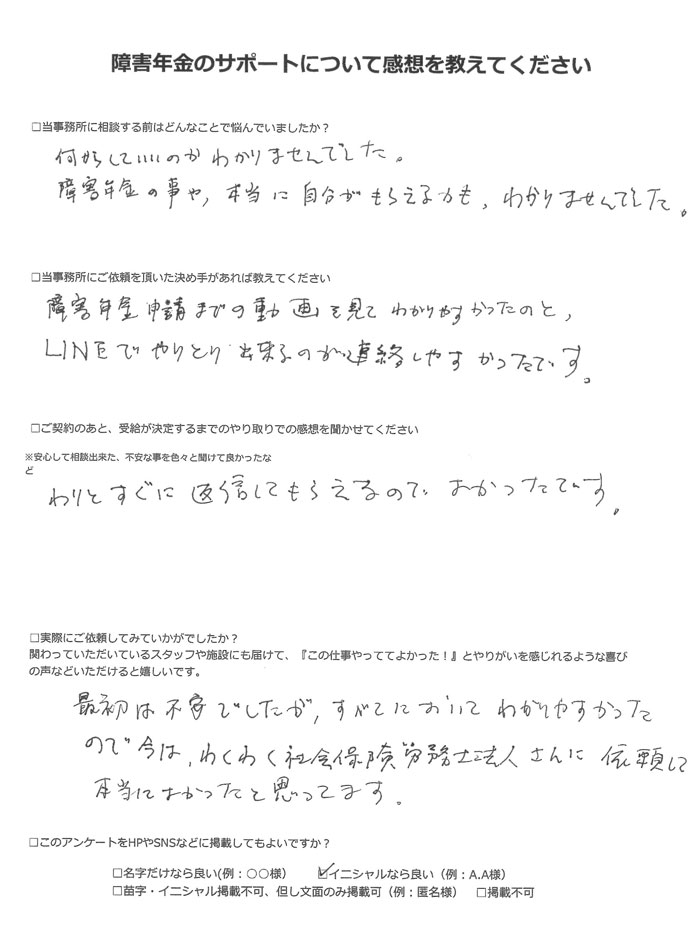 障害年金のサポートについて感想を教えてください
□当事務所に相談する前はどんなことで悩んでいましたか？
何からしていいのかわかりませんでした。
障害年金の事や,本当に自分がもらえるかも、わかりませんでした。
□当事務所にご依頼を頂いた決め手があれば教えてください
障害年金申請までの動画を見てわかりやすかったのと,
LINEでやりとり出来るのが連絡しやすかったです。
□ご契約のあと、受給が決定するまでのやり取りでの感想を聞かせてください
※安心して相談出来た、不安な事を色々と聞けて良かったな
ど
わりとすぐに返信してもらえるので よかったです。
□実際にご依頼してみていかがでしたか？
関わっていただいているスタッフや施設にも届けて、『この仕事やっててよかった！』とやりがいを感じれるような喜び
の声などいただけると嬉しいです。
最初は不安でしたが,すべてにおいてわかりやすかった
ので今は,わくわく社会保険労務士法人さんに依頼して
本当によかったと思ってます。
□このアンケートをHPやSNSなどに掲載してもよいですか？
□名字だけなら良い(例：〇〇様） ☑イニシャルなら良い（例：A.A様）
□苗字・イニシャル掲載不可、但し文面のみ掲載可（例：匿名様） □掲載不可